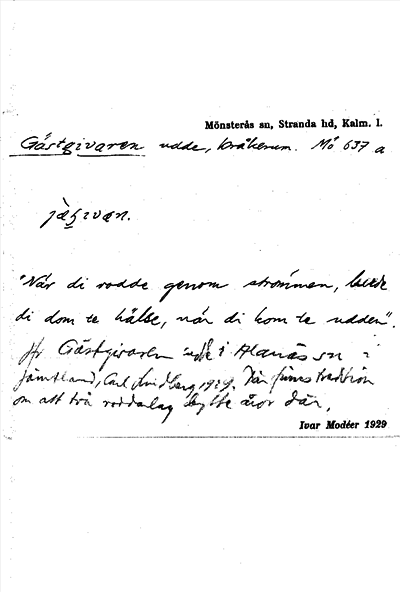 Mönsterås sn, Stranda hd, Kalm. l.
Gästgivaren udde, Kråkerum. Mö 637 a
jæʂivaɳ.
"När di rodde genom strömmen,
di dom te hälse, när di kom te udden".
Jfr Gästgivaren udde i Alanäs sn i
Jämtland, Carl Lindberg 1929. Där finns tradition
om att två roddarlag bytte åror där.
Ivar Modéer 1929